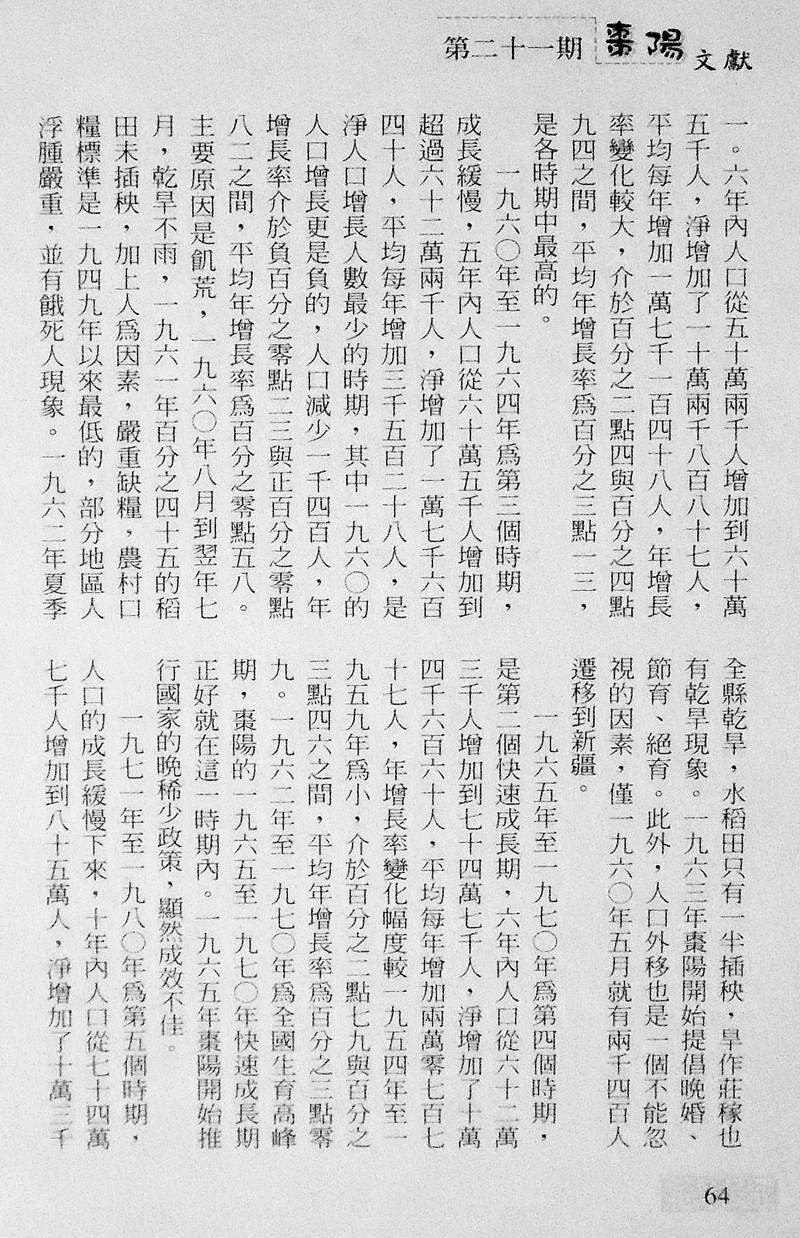 第二十一期 棗陽文獻
一。六年內人口從五十萬兩千人增加到六十萬
五千人，淨增加了一十萬兩千八百八十七人，
平均每年增加一萬七千一百四十八人，年增長
率變化較大，介於百分之二點四與百分之四點
九四之間，平均年增長率爲百分之三點一三，
是各時期中最高的。
一九六〇年至一九六四年爲第三個時期，
成長緩慢，五年內人口從六十萬五千人增加到
超過六十二萬兩千人，淨增加了一萬七千六百
四十人，平均每年增加三千五百二十八人，是
淨人口增長人數最少的時期，其中一九六〇的
人口增長更是負的，人口減少一千四百人，年
增長率介於負百分之零點二三與正百分之零點
八二之間，平均年增長率爲百分之零點五八。
主要原因是飢荒，一九六〇年八月到翌年七
月，乾旱不雨，一九六一年百分之四十五的稻
田未插秧，加上人爲因素，嚴重缺糧，農村口
糧標準是一九四九年以來最低的，部分地區人
浮腫嚴重，並有餓死人現象。一九六二年夏季
全縣乾旱，水稻田只有一半插秧，旱作莊稼也
有乾旱現象。一九六三年棗陽開始提倡晚婚、
節育、絕育。此外，人口外移也是一個不能忽
視的因素，僅一九六〇年五月就有兩千四百人
遷移到新疆。
一九六五年至一九七〇年爲第四個時期，
是第二個快速成長期，六年內人口從六十二萬
三千人增加到七十四萬七千人，淨增加了十萬
四千六百六十人，平均每年增加兩萬零七百七
十七人，年增長率變化幅度較一九五四年至一
九五九年爲小，介於百分之二點七九與百分之
三點四六之間，平均年增長率爲百分之三點零
九。一九六二年至一九七〇年爲全國生育高峰
期，棗陽的一九六五至一九七〇年快速成長期
正好就在這一時期內。一九六五年棗陽開始推
行國家的晚稀少政策，顯然成效不佳。
一九七一年至一九八〇年爲第五個時期，
人口的成長緩慢下來，十年內人口從七十四萬
七千人增加到八十五萬人，淨增加了十萬三千
64